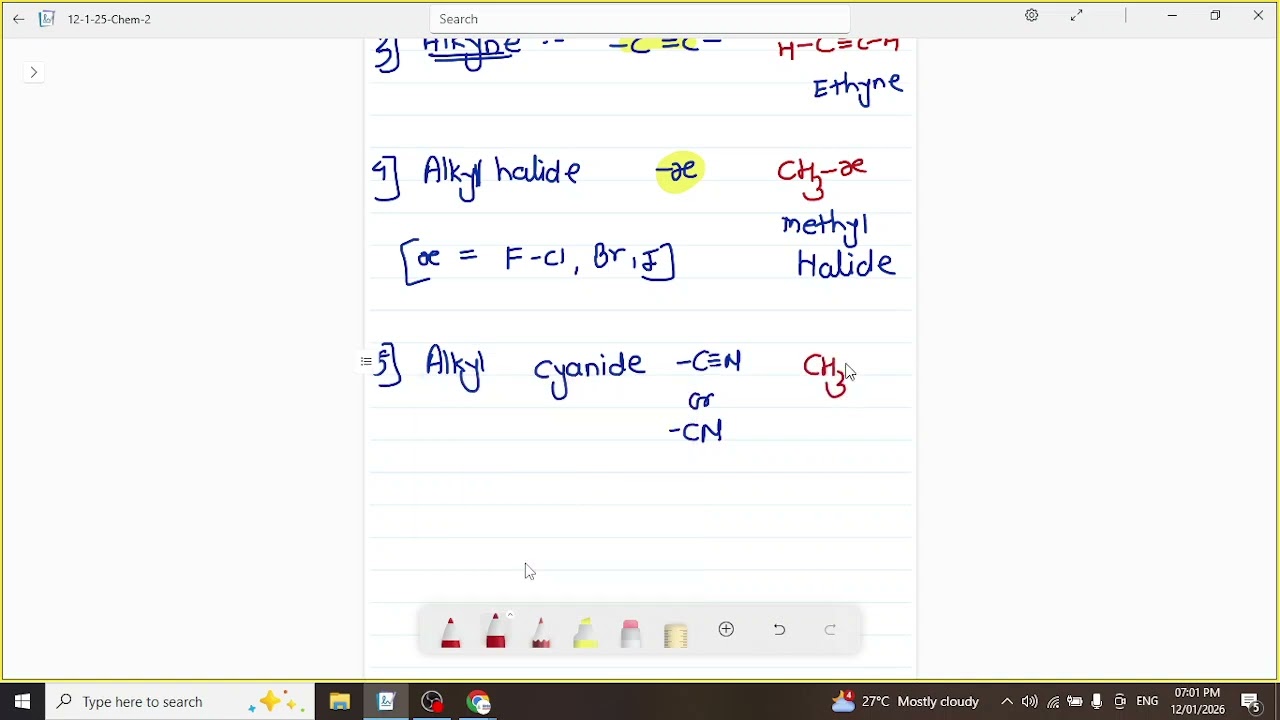 12-1-25-Chem-2
Search
3] Alkyne :- -C≡C- H-C≡C-H
Ethyne
4] Alkyl halide -x CH3-x
methyl
[x = F-Cl, Br, I] Halide
5] Alkyl cyanide -C≡N CH3
or
-CN
Type here to search
27°C Mostly cloudy
ENG
07:01 PM
12/01/2026
4
5